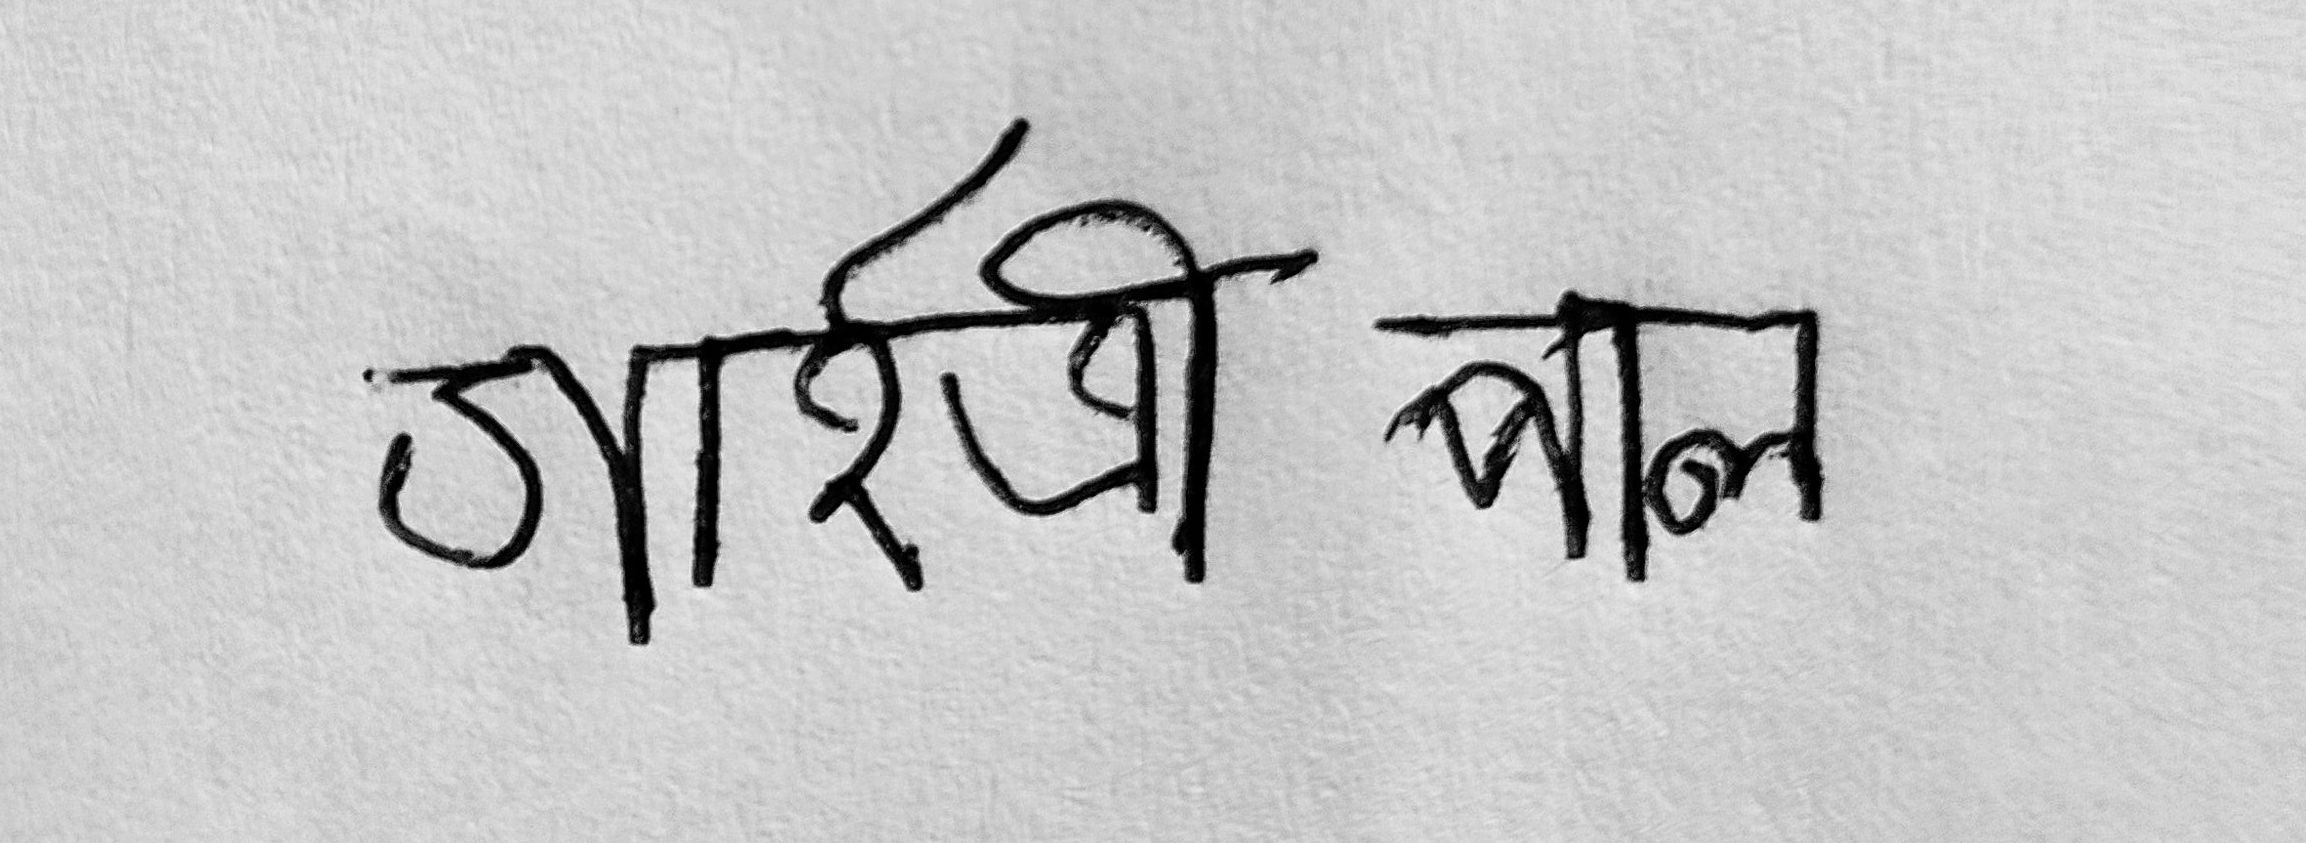 গাইত্রী পাল